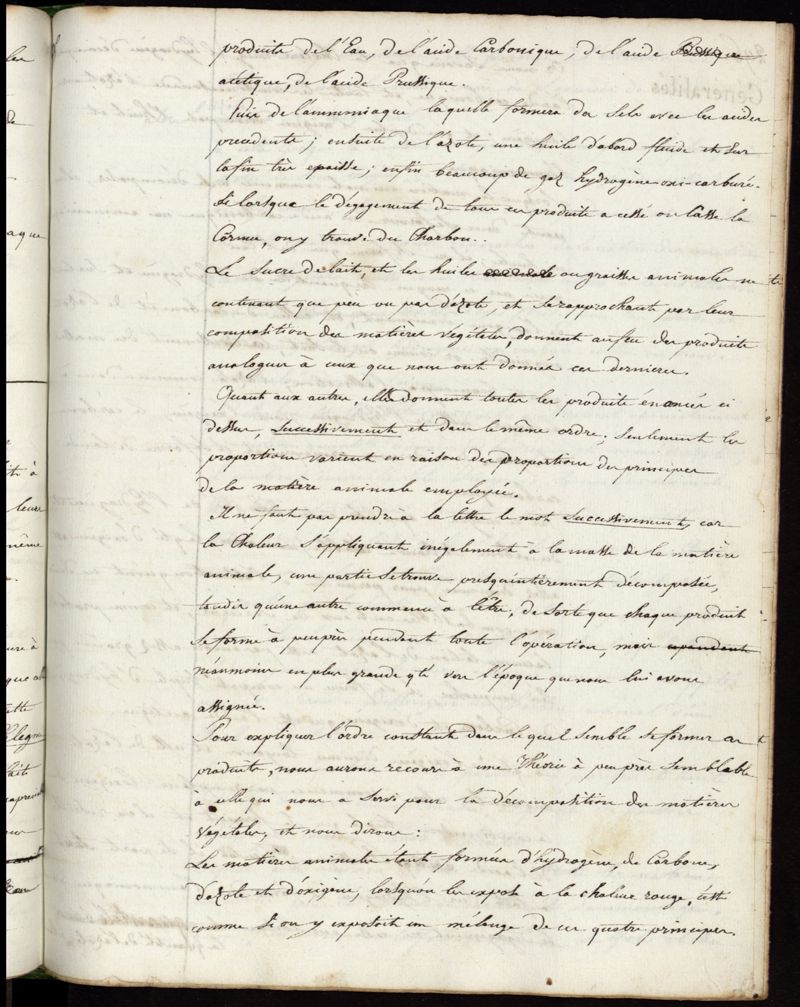 produits de l'Eau, de l'acide Carbonique, de l'acide
acétique, de l'acide Prussique.
Puis de l'ammoniaque laquelle formera des Sels avec les acides
precedents; ensuite de l'azote, une huile d'abord fluide et Sur
la fin très epaisse; enfin beaucoup de gaz hydrogène oxi-carburé.
Si lorsque le dégagement de tous ces produits a cessé on Casse la
Cornue, on y trouve du Charbon..
Le Sucre de lait, et les huiles ou graisses animales ne
contenant que peu ou pas d'azote, et se rapprochant par leur
composition des matières Végétales, donnent au feu des produits
analogues à ceux que nous ont donnés ces derniers.
Quant aux autres, elles donnent toutes les produits énoncés ci
dessus, Successivement et dans le même ordre; Seulement les
proportions varient en raison des proportions des principes
de la matière animale employée.
Il ne faut pas prendre à la lettre le mot Successivement, car
la Chaleur S'appliquant inégalement à la masse de la matière
animale, une partie Se trouve presqu'entièrement décomposée,
tandis qu'une autre commence à l'être, de Sorte que chaque produit
Se forme à peu près pendant toute l'opération, mais cependant
néanmoins en plus grande qté vers l'époque que nous lui avons
assignée.
Pour expliquer l'ordre constant dans lequel Semble Se former ces
produits, nous aurons recours à une Théorie à peu près Semblable
à celle qui nous a Servi pour la décomposition des matières
Végétales, et nous dirons:
Les matières animales étant formées d'hydrogène, de Carbone,
d'azote et d'oxigène, lorsqu'on les expose à la chaleur rouge, c'est
comme Si on y exposoit un mélange de ces quatre principes.